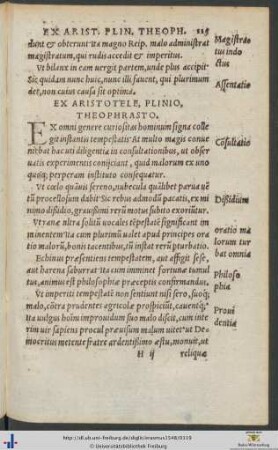 EX ARIST. PLIN. THEOPH. 115
dunt & obterunt ita magno Reip. malo administrat
magistratum, qui rudis accedit & imperitus.
Magistratus indoctus
Ut bilanx in eam uergit partem, unde plus accipit:
Sic quidam nunc huic, nunc illi fauent, qui plurimum
det, non cuius causa sit optima.
Assentatio
EX ARISTOTELE, PLINIO,
THEOPHRASTO.
EX omni genere curiositas hominum signa colle
git instantis tempestatis: At multo magis conue
niebat hac uti diligentia in consultationibus, ut obser
uatis experimentis conijciant, quid malorum ex uno
quoq; perperam instituto consequatur.
Cōsultatio
Ut cœlo quāuis sereno, nubecula quālibet parua uē
tū procellosum dabit: Sic rebus admodū pacatis, ex mi
nimo dissidio, grauissimi rerū motus subito exoriūtur.
Dissidium
Ut rane ultra solitū uocales tēpestatē significant im
minentem: ita cum plurimū ualet apud principes ora
tio malorū, bonis tacentibus, tū instat rerū pturbatio.
oratio ma
lorum tur
bat omnia
Echinus præsentiens tempestatem, aut affigit sese,
aut harena saburrat: ita cum imminet fortunæ tumul
tus, animus est philosophiæ præceptis confirmandus.
Philoso
phia
Ut imperiti tempestatē non sentiunt nisi sero, suoq;
malo, cōtra prudentes agricolæ prospiciūt, cauentq;:
Ita uulgus hoim improuidum suo malo discit, cum inte
rim uir sapiens procul præuisum malum uitet: ut De
mocritus metente fratre ardentissimo æstu, monuit, ut
Proui
dentia
H ij reliquæ
http://dl.ub.uni-freiburg.de/diglit/erasmus1548/0119
© Universitätsbibliothek Freiburg
Baden-Württemberg